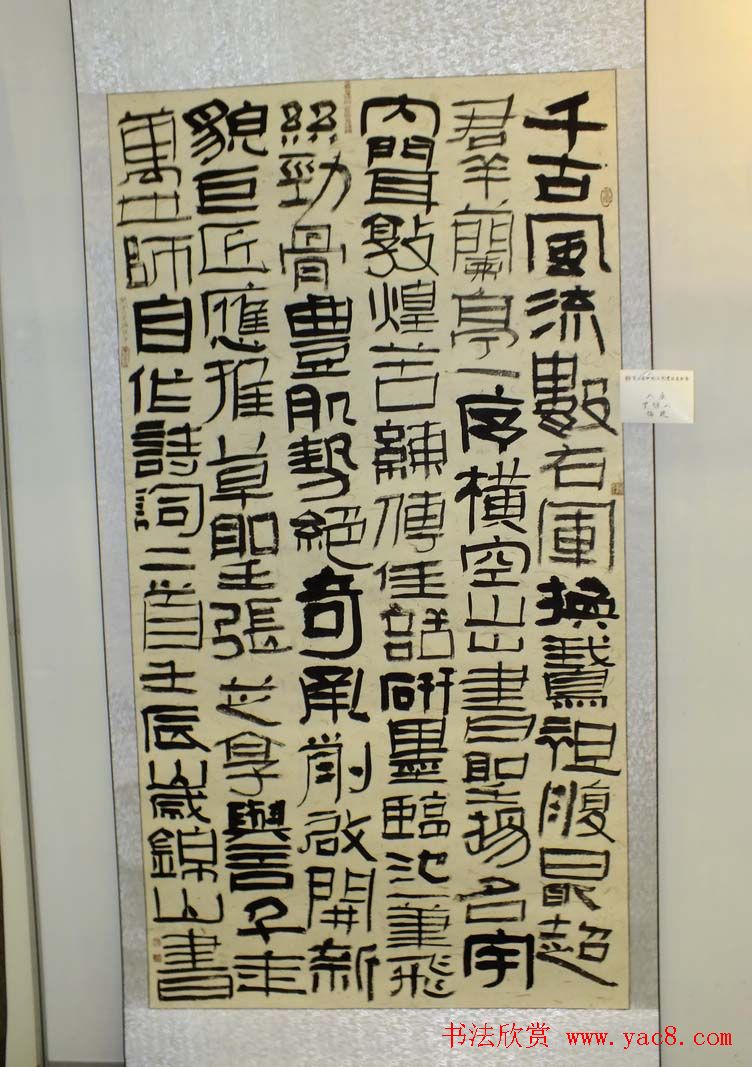 千古風流數右軍換鵝袒腹最超
群蘭亭一序橫空出書聖揚名宇
内聞敦煌苦練傳佳話研墨臨池筆飛
絲勁骨豐肌勢絕奇承前啟開新
貌巨匠應推草聖張芝享譽千年
萬世師自作詩詞二首壬辰歲錦山書
书法欣赏 www.yac8.com